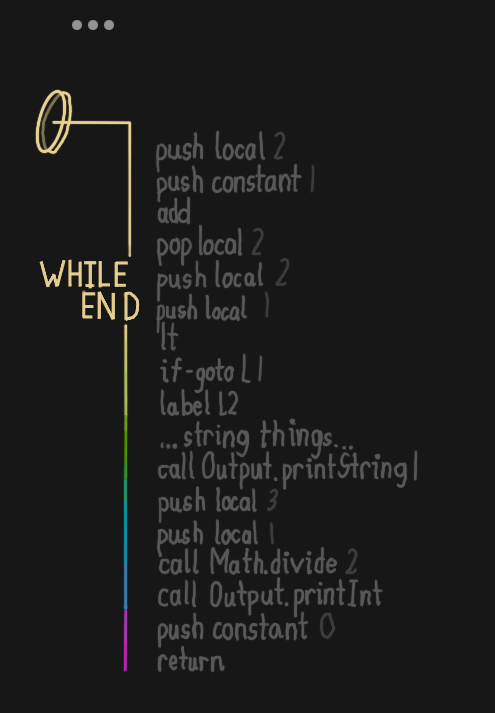 push local 2
push constant 1
add
pop local 2
WHILE
push local 2
END
push local 1
lt
if-goto L1
label L2
...string things...
call Output.printString 1
push local 3
push local 1
call Math.divide 2
call Output.printInt
push constant 0
return